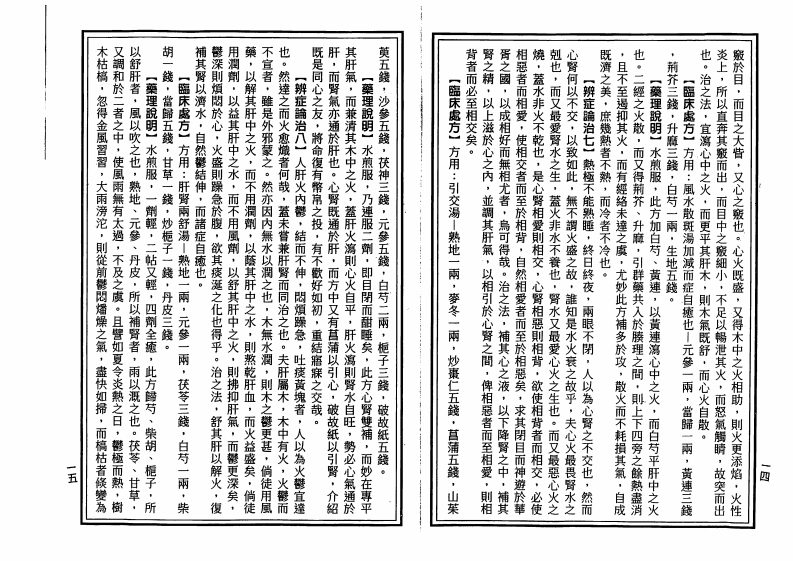 竅於目，而目之大眥，又心之竅也。心火既盛，又得木中之火相助，則火更添焰，火性
炎上，所以直奔其竅而出，而目中之竅細小，不足以暢泄其火，而怒氣觸睛，故突而出
也。治之法，宜瀉心中之火，而更平其肝木，則木氣既舒，而心火自散。
【臨床處方】方用：風水散斑湯加減而症自癒也─元參一兩，當歸一兩，黃連三錢
，荊芥三錢，升麻三錢，白芍一兩，生地五錢。
【藥理說明】水煎服，此方加白芍、黃連，以黃連瀉心中之火，而白芍平肝中之火
也。二經之火散，而又得荊芥、升麻，引群藥共入於腠理之間，則上下四旁之餘熱盡消
，且不至遏抑其火，而有經絡未達之虞，尤妙此方補多於攻，散火而不耗損其氣，自成
既濟之美，庶幾熱者不熱，而冷者不冷也。
【辨症論治七】熱極不能熟睡，終日終夜，兩眼不閉，人以為心腎之不交也，然而
心腎何以不交，以致如此，無不謂火盛之故，誰知是水火衰之故乎，夫心火最畏腎水之
剋也，而又最愛腎水之生，蓋火非水不養也，腎水又最愛心火之生也。而又最惡心火之
燒，蓋水非火不乾也，是心腎相愛則相交，心腎相惡則相背，欲使相背者而相交，必使
相惡者而相愛，使相交者而至於相背，自然相愛者而至於相惡矣，求其閉目而神遊於華
胥之國，以成相好而無相尤者，烏可得哉。治之法，補其心之液，以下降腎之中，補其
腎之精，以上滋於心之內，並調其肝氣，以相引於心腎之間，俾相惡者而至相愛，則相
背者而必至相交矣。
【臨床處方】方用：引交湯─熟地一兩，麥冬一兩，炒棗仁五錢，菖蒲五錢，山茱
一四
萸五錢，沙參五錢，茯神三錢，元參五錢，白芍二兩，梔子三錢，破故紙五錢。
【藥理說明】水煎服，乃連服二劑，即目閉而酣睡矣，此方心腎雙補，而妙在專平
其肝氣，而兼清其木中之火，蓋肝火瀉則心火自平，肝火瀉則腎水自旺，勢必心氣通於
肝，而腎氣亦通於肝也。心腎既通於肝，而方中又有菖蒲以引心，破故紙以引腎，介紹
既是同心之友，將命復有幣帛之投，有不歡好如初，重結寤寐之交哉。
【辨症論治八】人肝火內鬱，結而不伸，悶煩躁急，吐痰黃塊者，人以為火鬱宜達
也。然達之而火愈熾者何哉，蓋未嘗兼肝腎而同治之也。夫肝屬木，木中有火，火鬱而
不宣者，雖是外邪蒙之。然亦因內無水以潤之也，木無水潤，則木之鬱更甚，倘徒用風
藥，以解其肝中之火，而不用潤劑，以蔭其肝中之水，則熬乾肝血，而火益盛矣，倘徒
用潤劑，以益其肝中之水，而不用風劑，以舒其肝中之火，則拂抑肝氣，而鬱更深矣，
鬱深則煩悶於心，火盛則躁急於腹，欲其痰涎之化也得乎。治之法，舒其肝以解火，復
補其腎以濟水，自然鬱結伸，而諸症自癒也。
【臨床處方】方用：肝腎兩舒湯─熟地一兩，元參一兩，茯苓三錢，白芍一兩，柴
胡一錢，當歸五錢，甘草一錢，炒梔子一錢，丹皮三錢。
【藥理說明】水煎服，一劑輕，二帖又輕，四劑全癒，此方歸芍、柴胡、梔子，所
以舒肝者，風以吹之也，熟地、元參、丹皮，所以補腎者，雨以溉之也。茯苓、甘草，
又調和於二者之中，使風雨無有太過，不及之虞。且譬如夏令炎熱之日，鬱極而熱，樹
木枯槁，忽得金風習習，大雨滂沱，則從前鬱悶燔燥之氣，盡快如掃，而槁枯者倏變為
一五